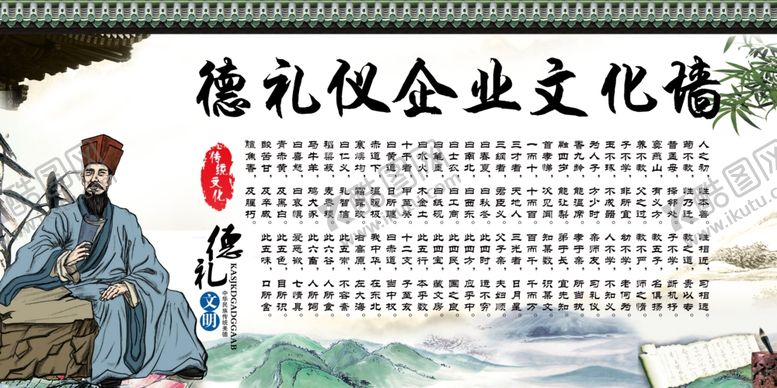 德礼仪企业文化墙
人之初，性本善。性相近，习相远。
苟不教，性乃迁。教之道，贵以专。
昔孟母，择邻处。子不学，断机杼。
窦燕山，有义方。教五子，名俱扬。
养不教，父之过。教不严，师之惰。
子不学，非所宜。幼不学，老何为。
玉不琢，不成器。人不学，不知义。
为人子，方少时。亲师友，习礼仪。
香九龄，能温席。孝于亲，所当执。
融四岁，能让梨。弟于长，宜先知。
首孝悌，次见闻。知某数，识某文。
一而十，十而百。百而千，千而万。
三才者，天地人。三光者，日月星。
三纲者，君臣义。父子亲，夫妇顺。
曰春夏，曰秋冬。此四时，运不穷。
曰南北，曰西东。此四方，应乎中。
曰士农，曰工商。此四民，国之良。
曰笔墨，曰纸砚。此四宝，藏文房。
曰水火，木金土。此五行，本乎数。
十干者，甲至癸。十二支，子至亥。
曰黄道，日所躔。曰赤道，当中权。
赤道下，温暖极。我中华，在东北。
寒燠均，霜露改。右高原，左大海。
曰仁义，礼智信。此五常，不容紊。
稻粱菽，麦黍稷。此六谷，人所食。
马牛羊，鸡犬豕。此六畜，人所饲。
曰喜怒，曰哀惧。爱恶欲，七情具。
青赤黄，及黑白。此五色，目所识。
酸苦甘，及辛咸。此五味，口所含。
膻焦香，及腥朽。
传统文化
德礼
文明
KASJKDGADGGAAB
酷图网
www.ikutu.com